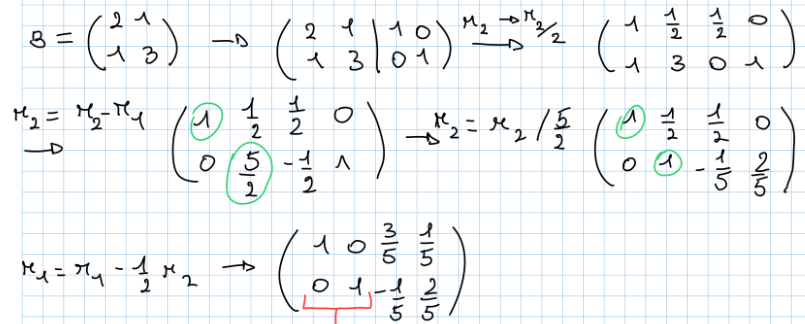 B = (2 1; 1 3) → (2 1 | 1 0; 1 3 | 0 1) r₂ → r₂/2 → (1 1/2 1/2 0; 1 3 0 1)
r₂ = r₂ - r₁ → (1 1/2 1/2 0; 0 5/2 -1/2 1) → r₂ = r₂ / 5/2 (1 1/2 1/2 0; 0 1 -1/5 2/5)
r₁ = r₁ - 1/2 r₂ → (1 0 3/5 1/5; 0 1 -1/5 2/5)